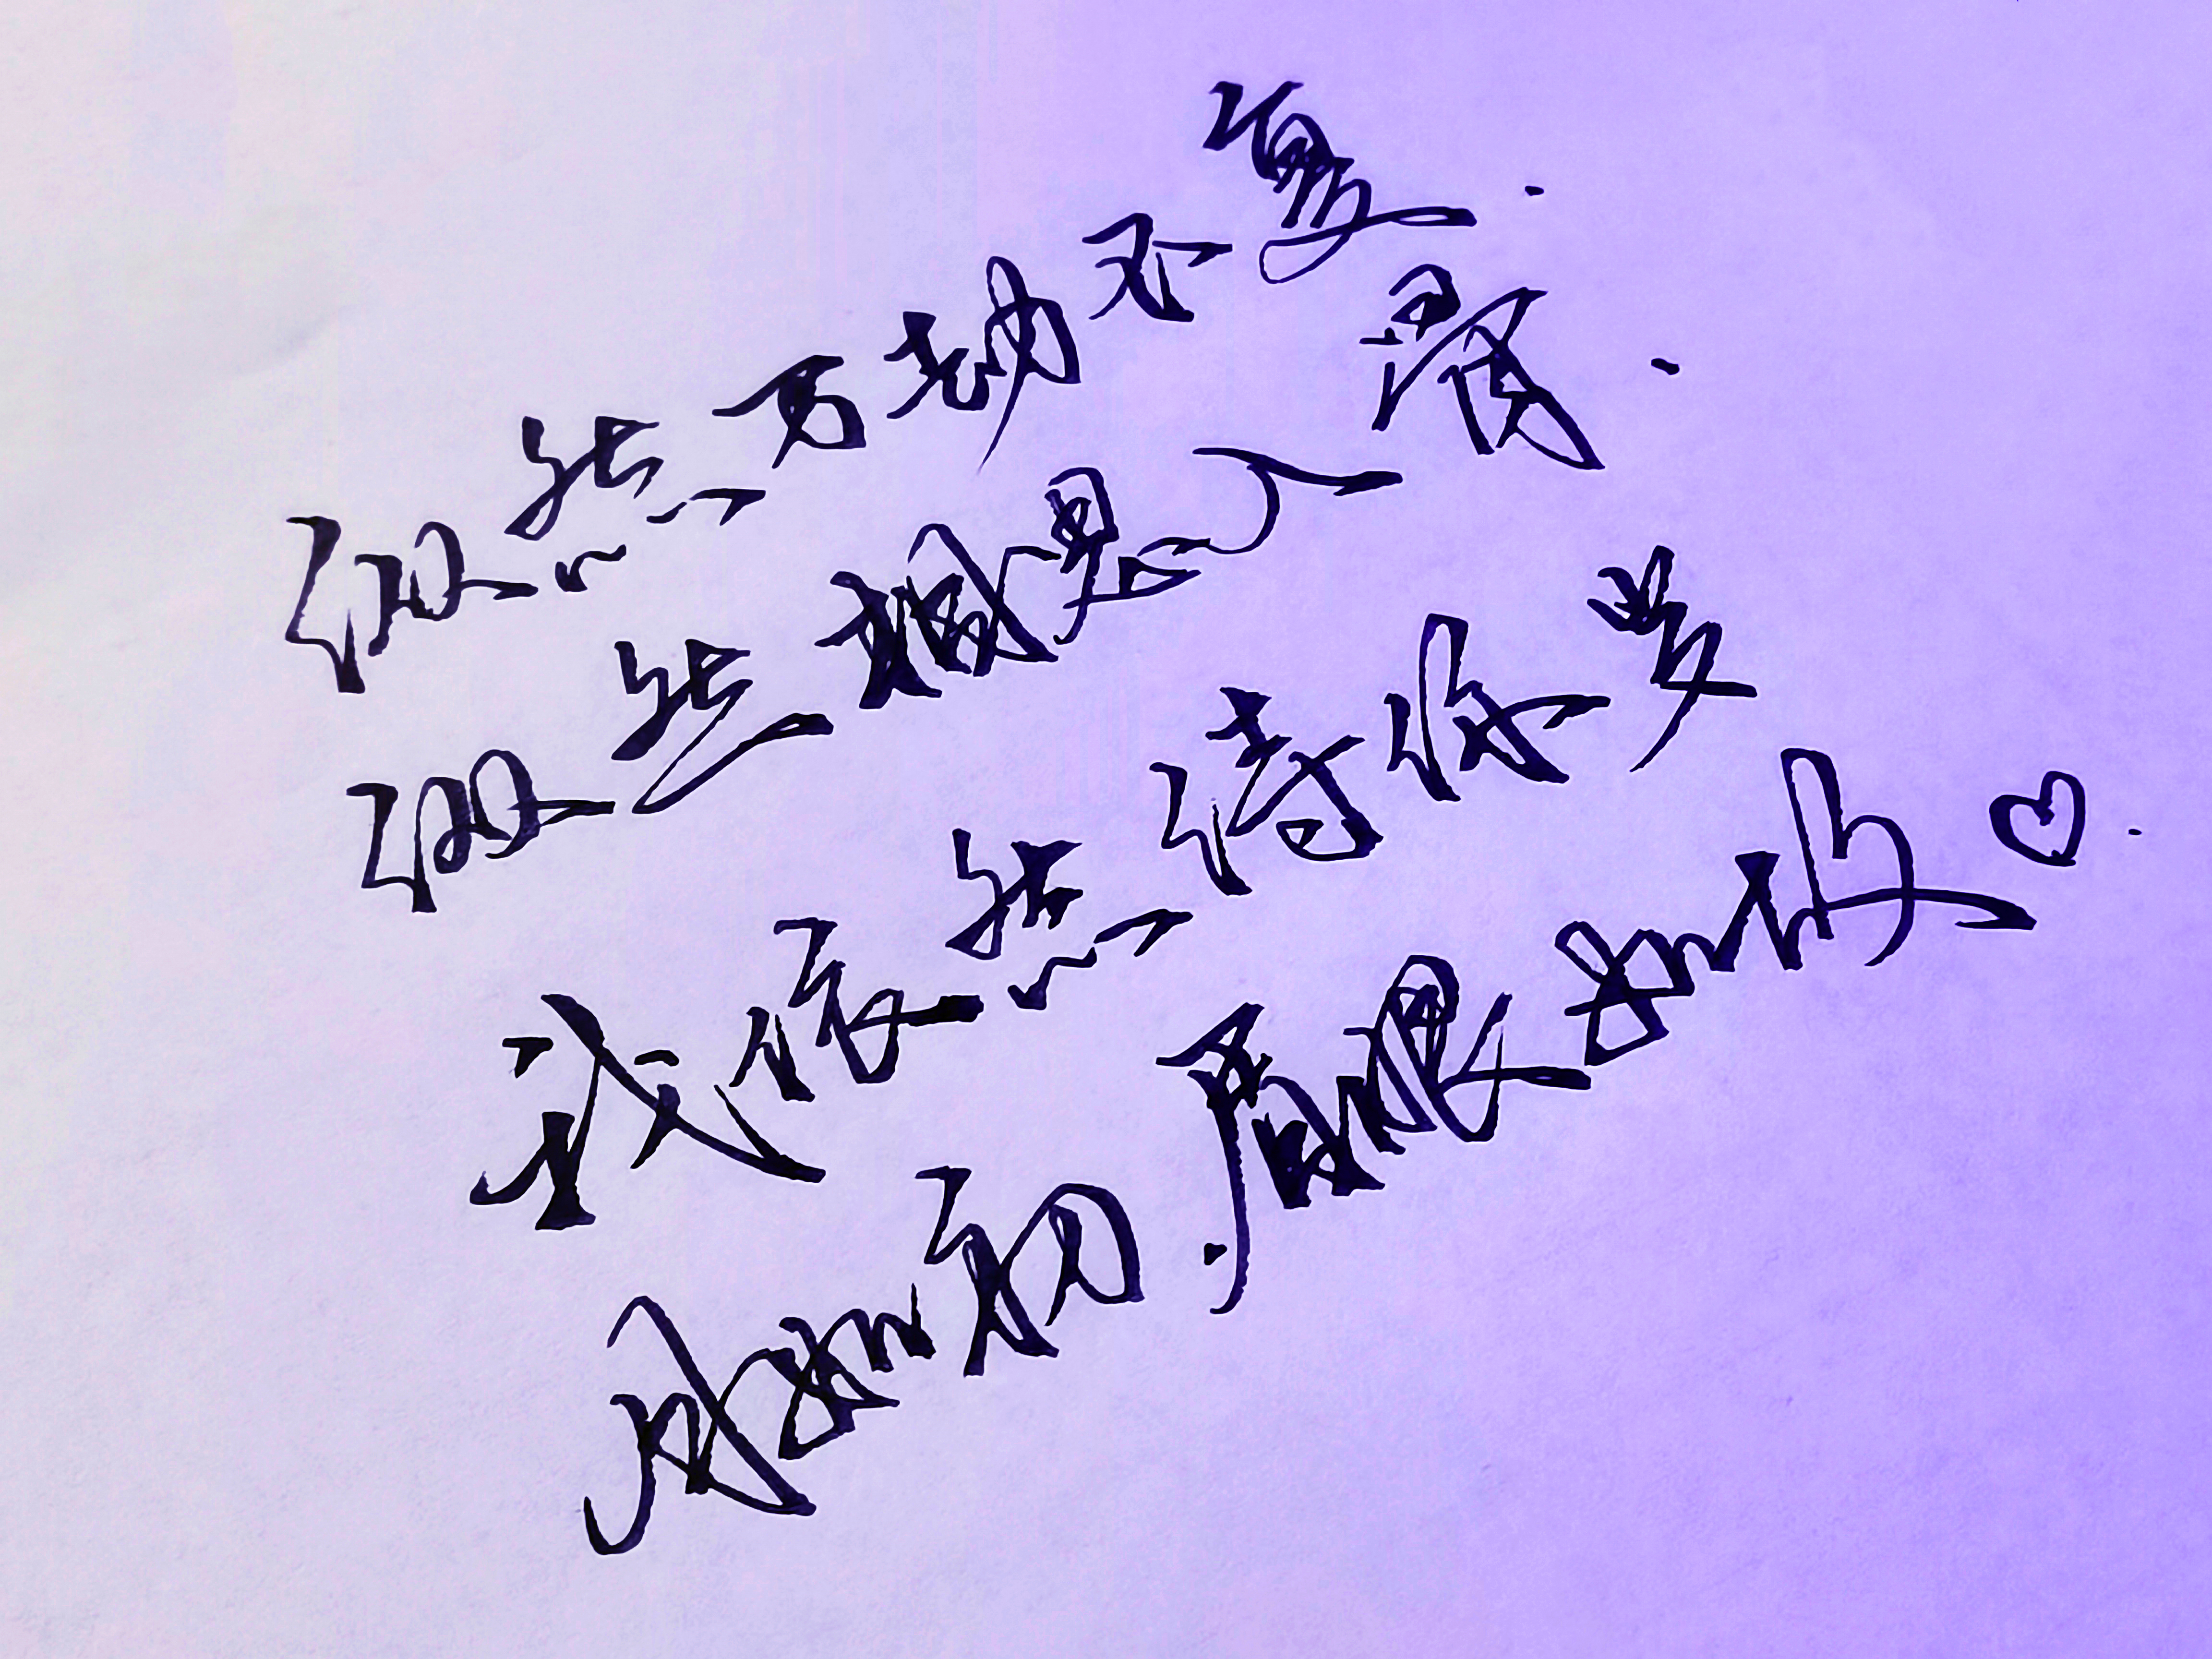 纵然万劫不复.
纵然相思入骨.
我依然待你岁
月如初.眉眼如你♡.